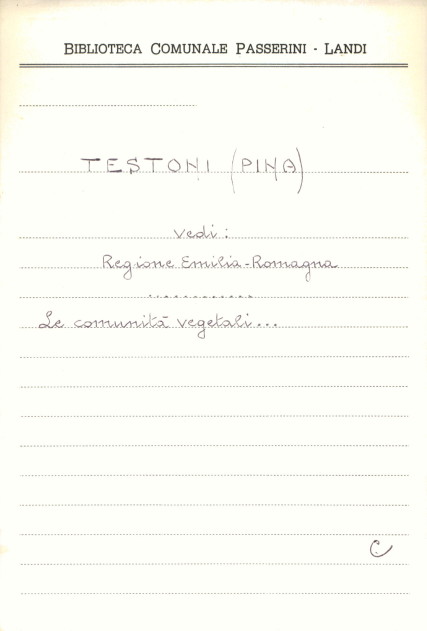 BIBLIOTECA COMUNALE PASSERINI - LANDI
TESTONI (PINA)
vedi:
Regione Emilia-Romagna
...........
Le comunità vegetali...
C